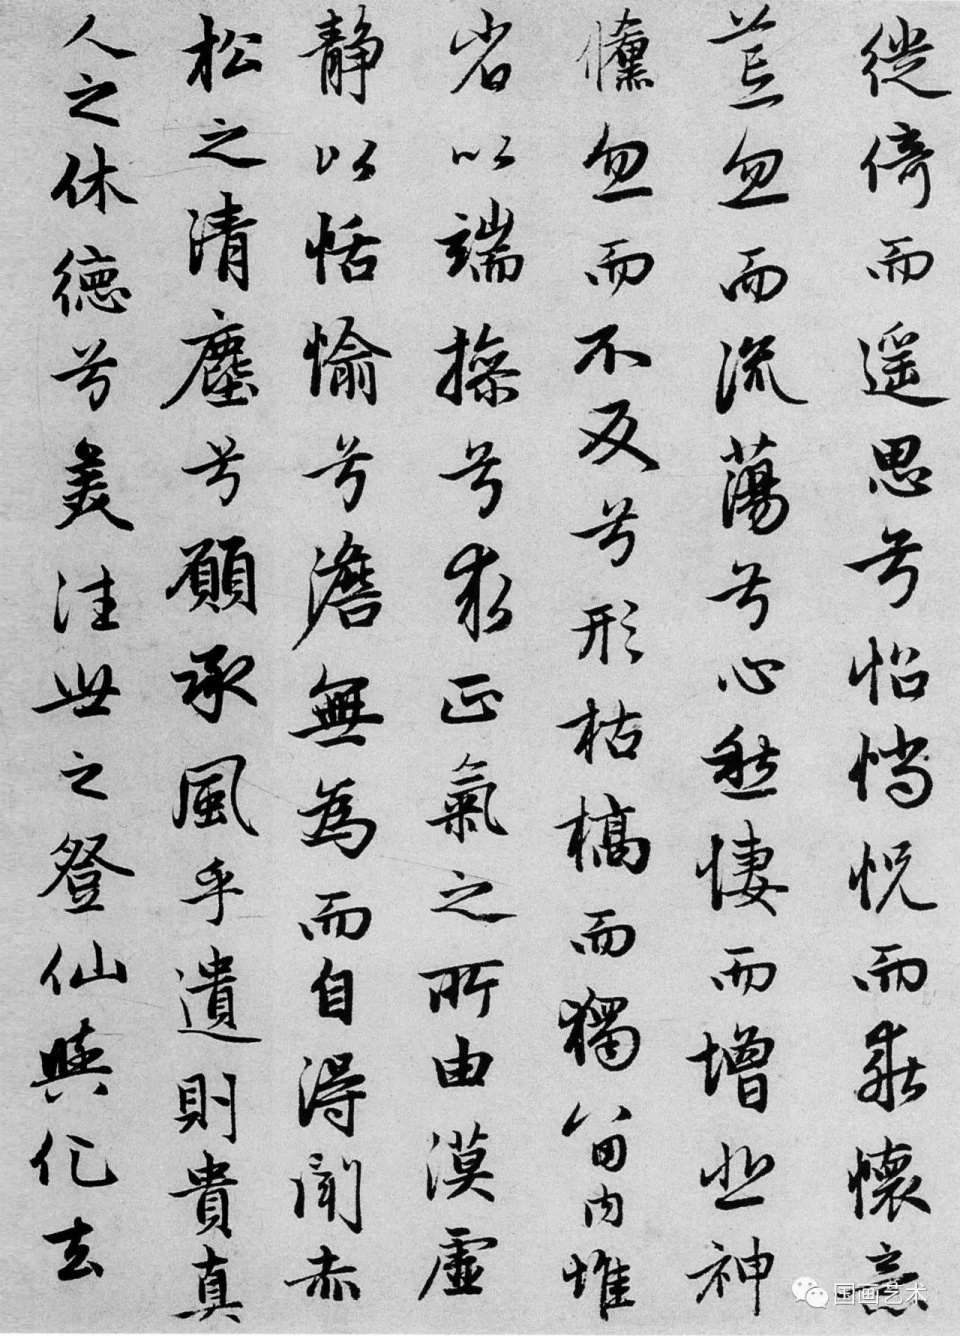 徙倚而遥思兮怊惝怳而乖懷意
荒忽而流蕩兮心愁悽而增悲神
儵忽而不反兮形枯槁而獨留内惟
省以端操兮求正氣之所由漠虛
静以恬愉兮澹無為而自得聞赤
松之清塵兮願承風乎遺則貴真
人之休德兮羙往世之登仙與化去
国画艺术